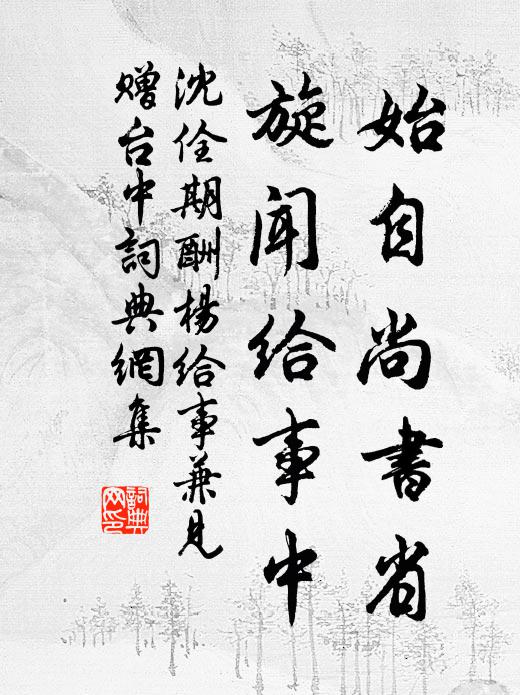 始自尚書省
旋聞給事中
沈佺期酬楊給事兼見
贈台中詞典網集
詞典網印